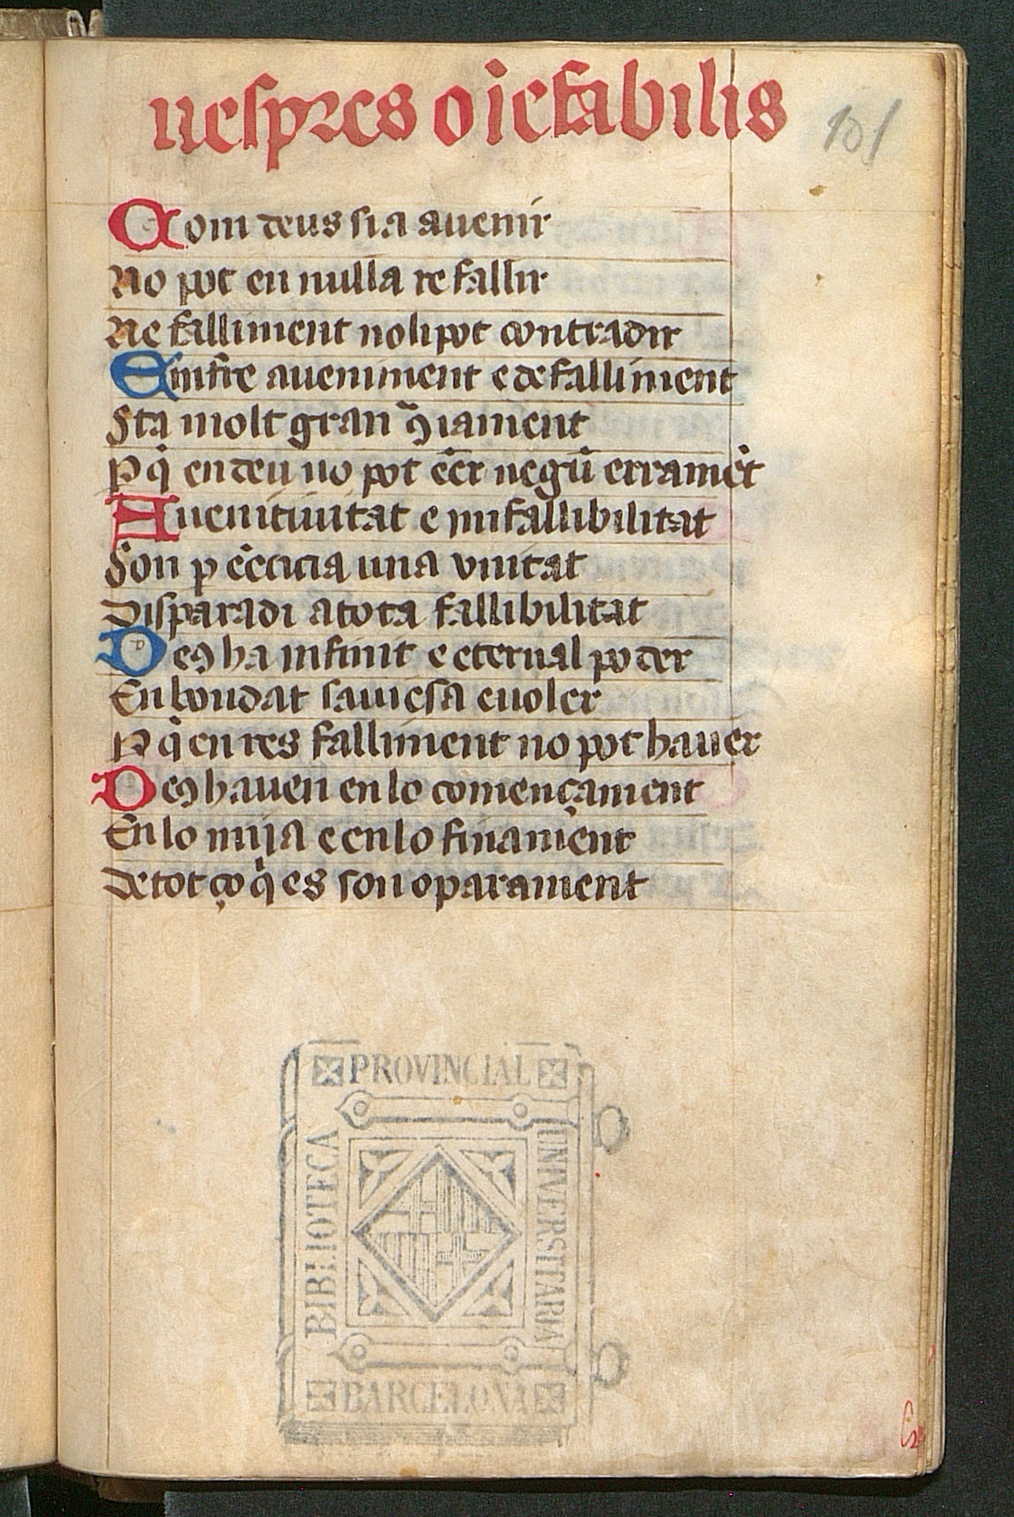 uespres oiefabilis
101
Com deus sia auenir
No pot en nulla re fallir
Ne falliment noli pot contradir
Enfre aueniment e de falliment
Sta molt gran ꝯ̃iament
P q̉ en deu no pot eēr negũ erramēt
Auenituitat e infallibilitat
Son p eēcicia una vnitat
Disparadi a tota fallibilitat
Deꝯ ha infinit e eternal poder
En bondat sauiesa e uoler
P q̉ en res falliment no pot hauer
Deꝯ hauen en lo començament
En lo mija e en lo finament
De tot ço q̉ es son oparament
PROVINCIAL
BIBLIOTECA
UNIVERSITARIA
BARCELONA